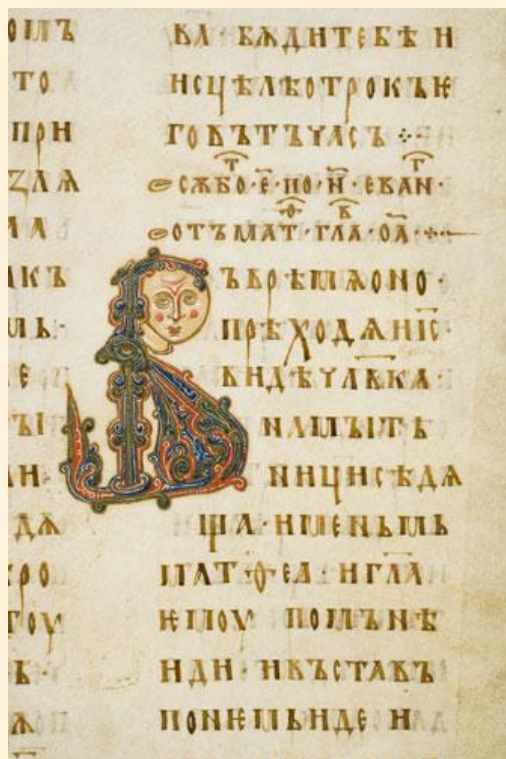 то
при
злѧ
ла
акъ
мь·
е
ъі
ди·
дѧ
ро
тоу
ь·
ѧ
ва · бѫди тебѣ и
исцѣлѣ отрокъ ѥ
го въ тъ часъ ·:·
сѫбо҃т · е҃ · по · н҃ · еван҃г ·
отъ мат҃ѳ · гла҃в · о҃а ·
Въ врѣмѧ оно ·
прѣходѧ и іс҃
видѣ чл҃вка ·
на мъіть
ници сѣдѧ
ща · именьмь
матѳеа · и гла҃
ѥмоу по мънѣ
иди · и въставъ
по немь иде и